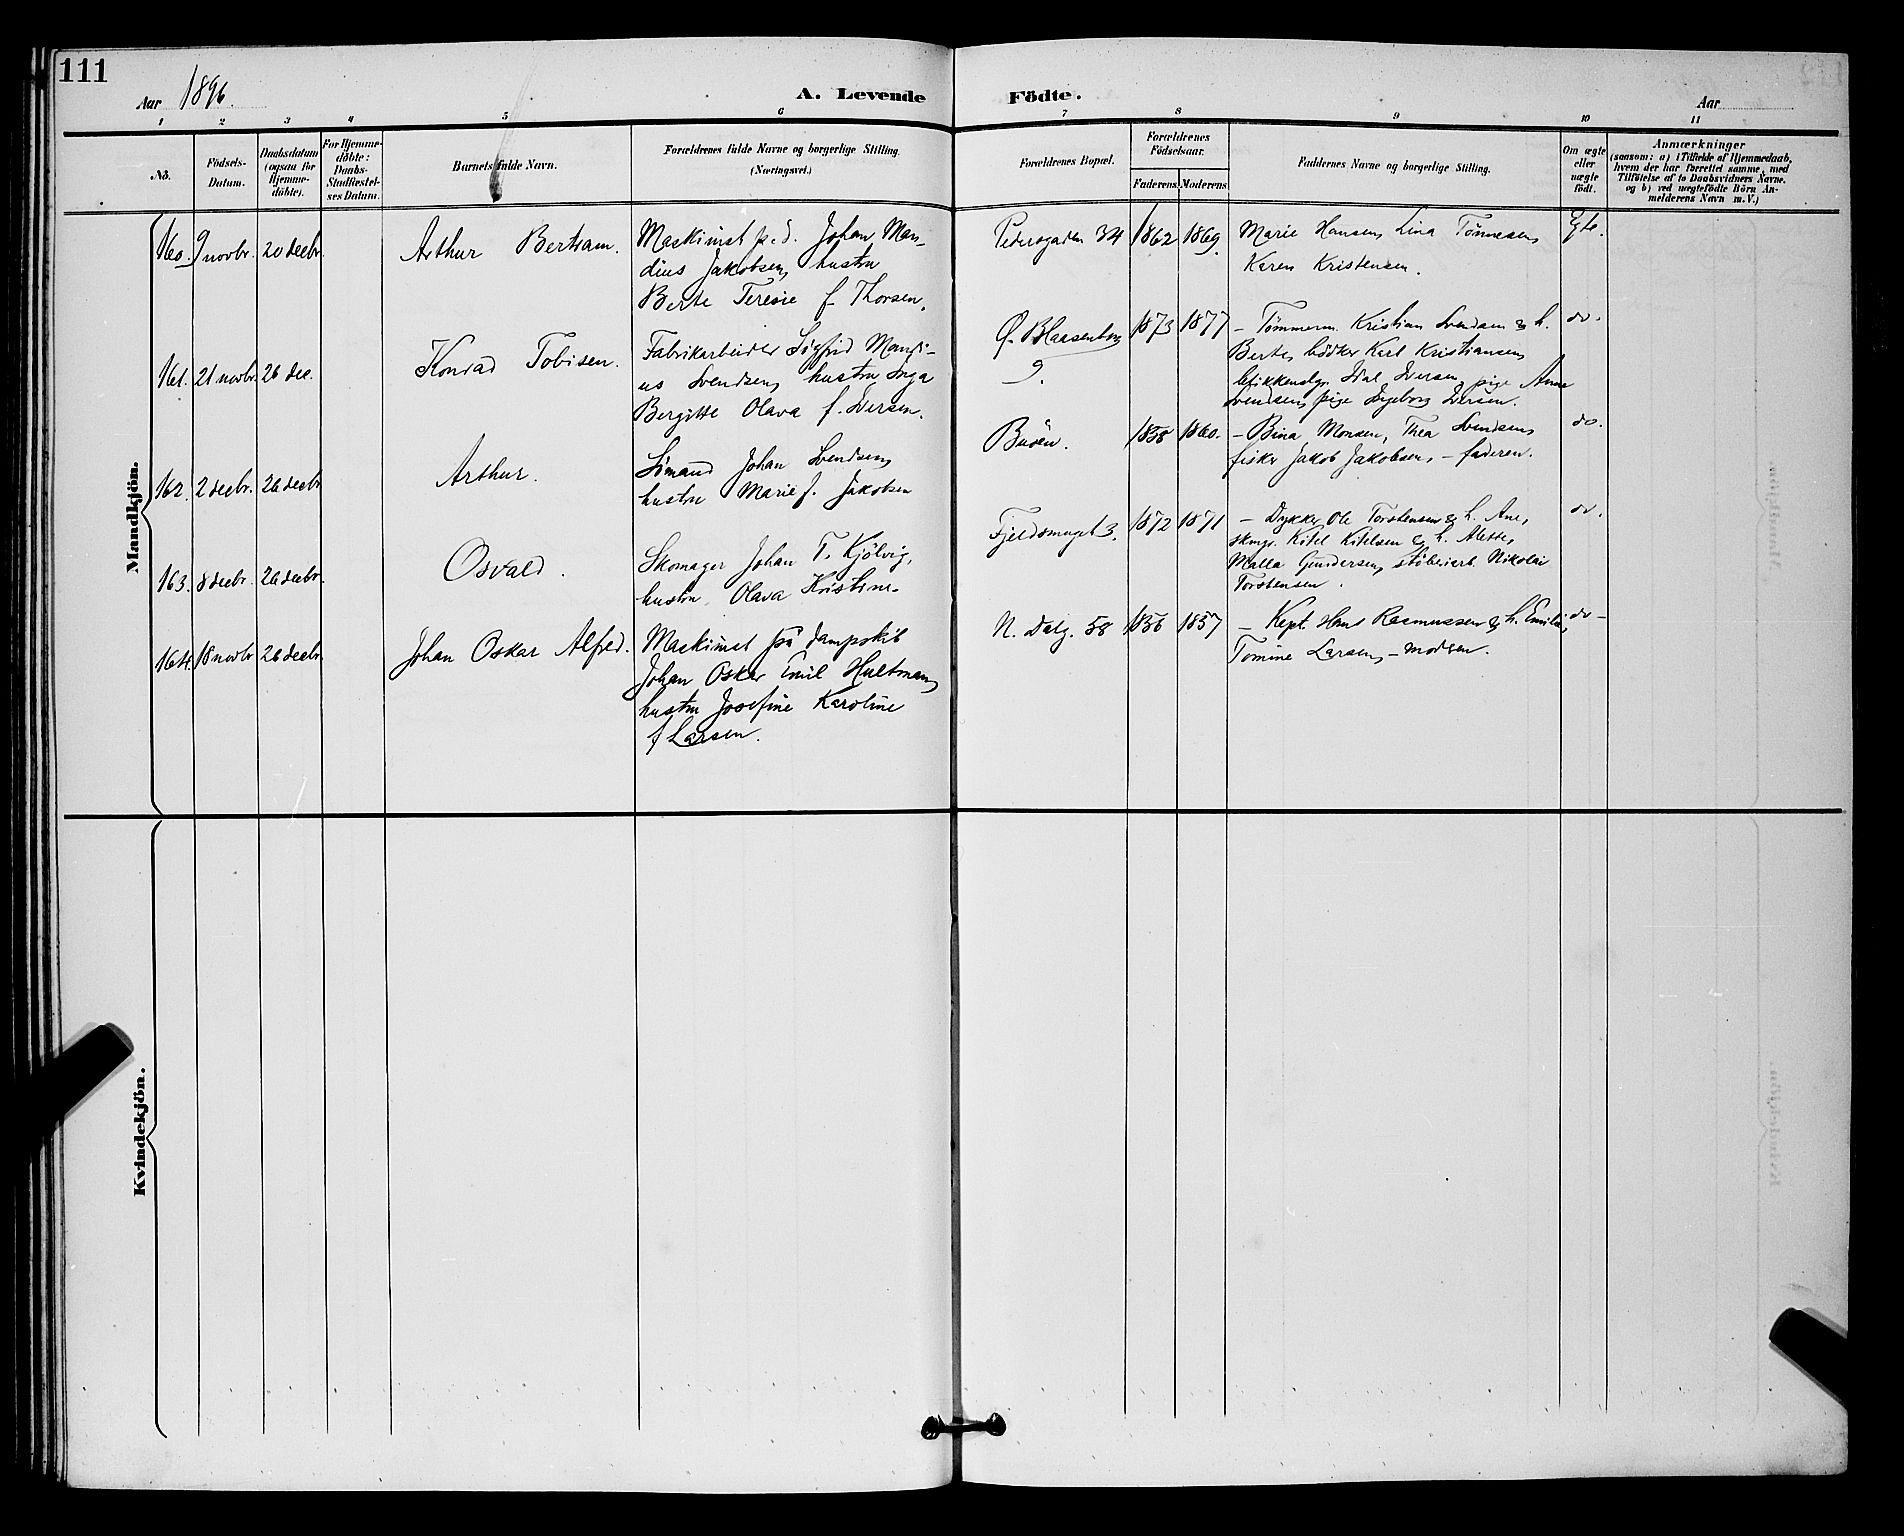 111
Aar 1896.
A. Levende Födte.
Aar
1 2 3 4 5 6 7 8 9 10 11
No.
Födsels-
Datum.
Daabsdatum
(ogsaa for
Hjemme-
döbte).
For Hjemme-
döbte:
Daabs-
Stadfæstel-
ses Datum.
Barnets fulde Navn.
Forældrenes fulde Navne og borgerlige Stilling.
(Næringsvei.)
Forældrenes Bopæl.
Forældrenes
Födselsaar.
Faderens. Moderens.
Faddernes Navne og borgerlige Stilling.
Om ægte
eller
uægte
födt.
Anmærkninger
(saasom: a) i Tilfælde af Hjemmedaab,
hvem der har forrettet samme, med
Tilföielse af to Daabsvidners Navne,
og b) ved uægtefödte Börn An-
melderens Navn m. V.)
Mandkjön.
160. 9 novbr. 20 decbr.
Arthur Bertram.
Maskinist p.d. Johan Man-
dius Jakobsen, hustru
Berte Teresie f. Thorsen.
Pedersgaden 34
1862 1869.
Marie Hansen, Lina Tönnesen,
Karen Kristensen.
Egte.
161. 21 novbr. 26 dec.
Konrad Tobisen.
Fabrikarbeider Sigfrid Mandi-
us Svendsen, hustru Inga
Bergitte Olava f. Iversen.
Ö. Blaasenborg
9.
1873 1877
– Tömmerm. Kristian Svendsen & h.
Berte, bödker Karl Kristiansen,
blikkenslgr. Idal Iversen, pige Anne
Svendsen, pige Ingeborg Iversen.
do.
162. 2 decbr. 26 decbr
Arthur.
Sömand Johan Svendsen,
hustru Marie f. Jakobsen
Buöen.
1858 1860.
– Bina Monsen, Thea Svendsen,
fisker Jakob Jakobsen, – faderen.
do.
163. 8 decbr. 26 decbr.
Osvald.
Skomager Johan T. Kjölvig,
hustru Olava Kristine.
Fjeldsmuget 3.
1872 1871
– Dykker Ole Torstensen & h. Ane,
skmgr. Kitel Kitelsen & h. Alette,
Malla Gundersen, stöberiarb. Nikolai
Torstensen.
do.
164. 18 novbr 26 decbr.
Johan Oskar Alfred.
Maskinist på dampskib
Johan Oskar Emil Hultman,
hustru Josefine Karoline
f Larsen.
N. Dalg. 58
1856 1857
– Kapt. Hans Rasmussen & h. Emilie,
Tomine Larsen, – modsen.
do –
Kvindekjön.